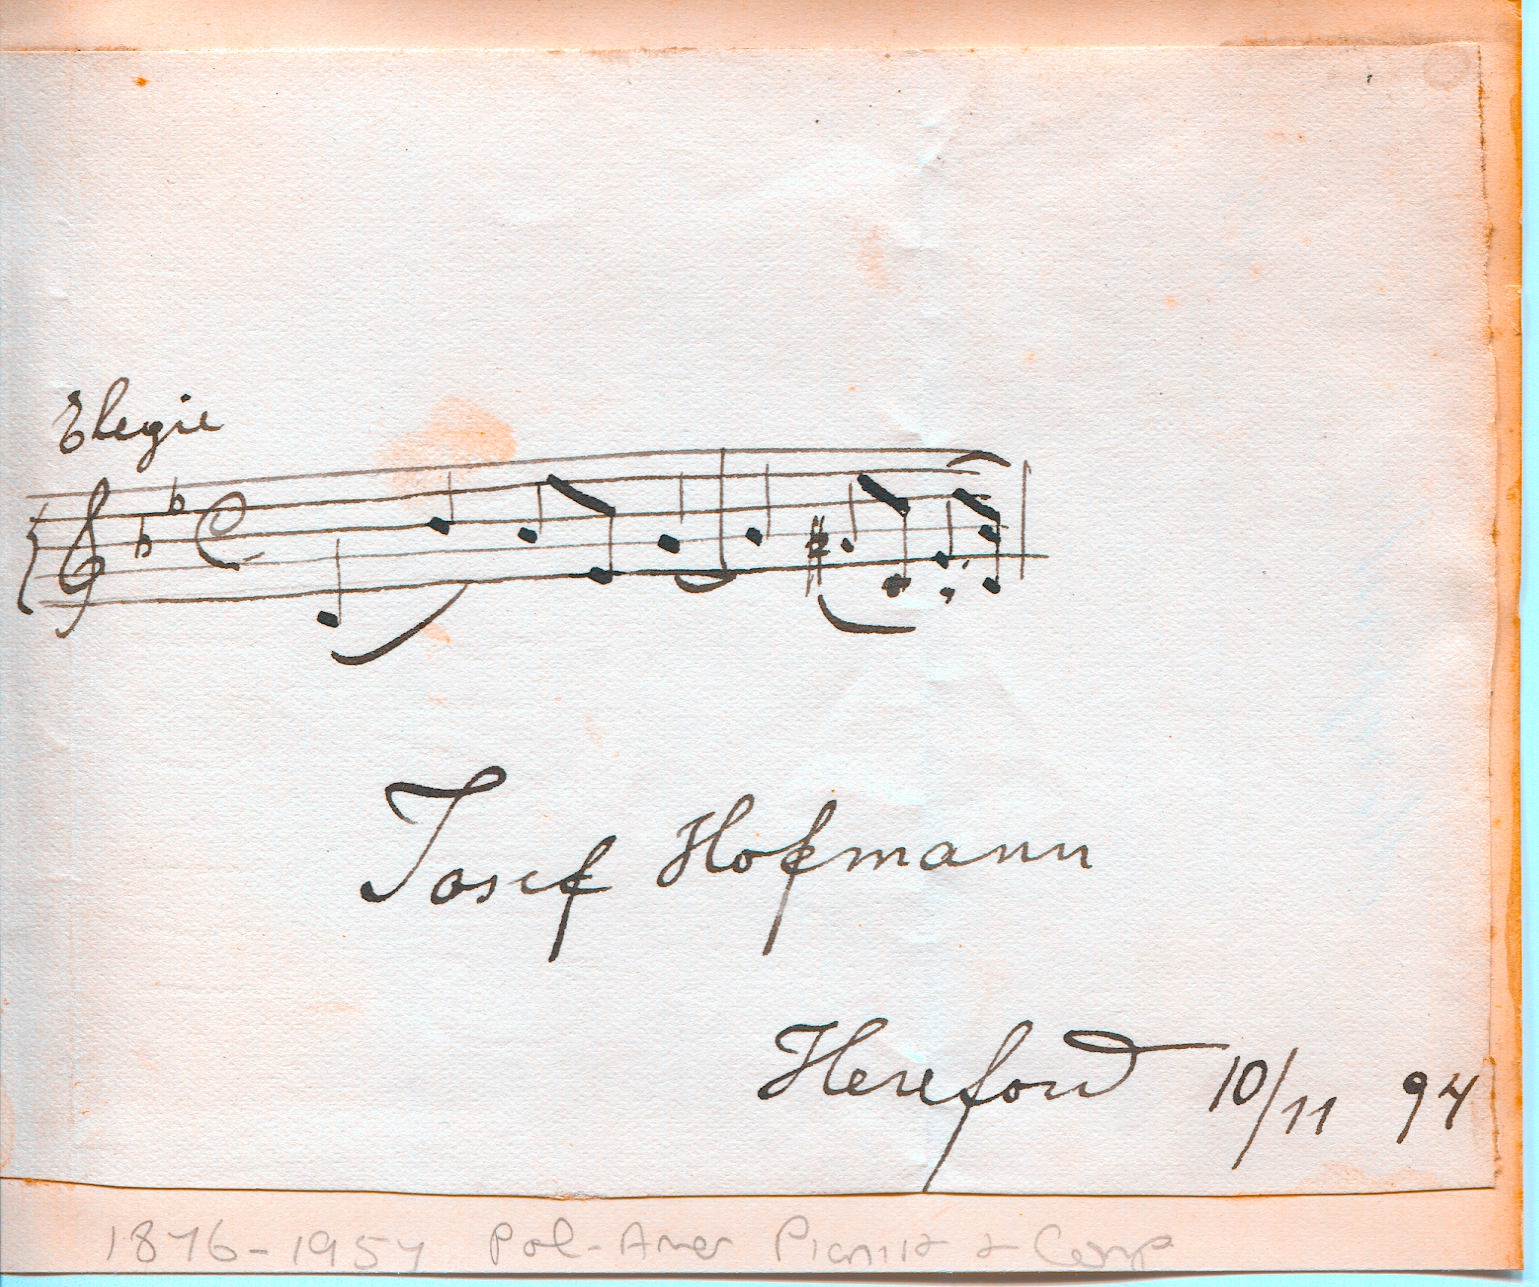 Elegie
Josef Hofmann
Hereford 10/11 94
1876-1957 Pol-Amer Pianist & Comp